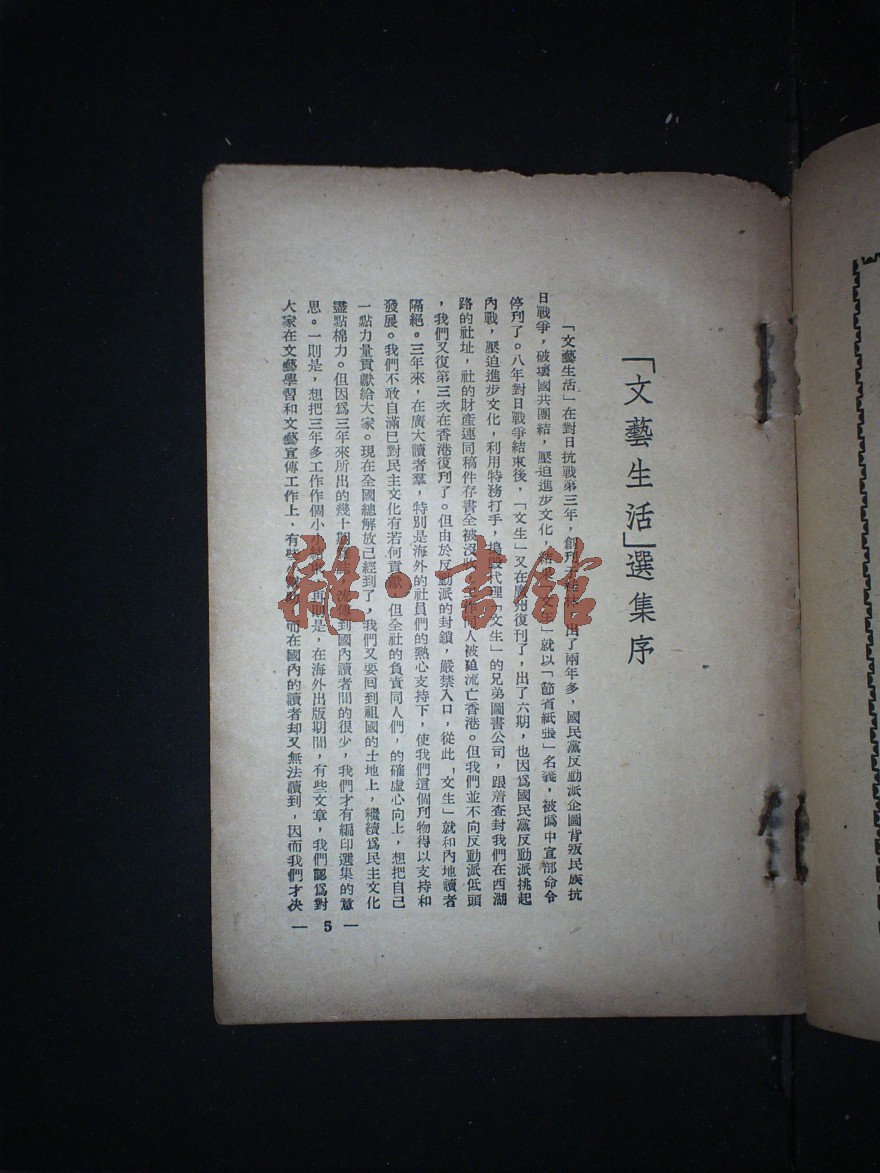 「文藝生活」選集序
「文藝生活」在對日抗戰第三年，創刊 出了兩年多，國民黨反動派企圖背叛民族抗
日戰爭，破壞國共團結，壓迫進步文化， 文生」就以「節省紙張」名義，被僞中宣部命令
停刊了。八年對日戰爭結束後，「文生」又在廣州復刊了，出了六期，也因爲國民黨反動派挑起
內戰，壓迫進步文化，利用特務打手，搗毀代理「文生」的兄弟圖書公司，跟着查封我們在西湖
路的社址，社的財產連同稿件存書全被沒收 同人被廹流亡香港。但我們並不向反動派低頭
，我們又復第三次在香港復刊了。但由於反動派的封鎖，嚴禁入口，從此，「文生」就和內地讀者
隔絕。三年來，在廣大讀者羣，特別是海外的社員們的熱心支持下，使我們這個刊物得以支持和
發展。我們不敢自滿已對民主文化有若何貢獻 但全社的負責同人們，的確虛心向上，想把自己
一點力量貢獻給大家。現在全國總解放已經到了，我們又要回到祖國的土地上，繼續爲民主文化
盡點棉力。但因爲三年來所出的幾十期 傳到國內讀者間的很少，我們才有編印選集的意
思。一則是，想把三年多工作作個小小 再則是，在海外出版期間，有些文章，我們認爲對
大家在文藝學習和文藝宣傳工作上，有些 而在國內的讀者却又無法讀到，因而我們才決
— 5 —
雅·書館